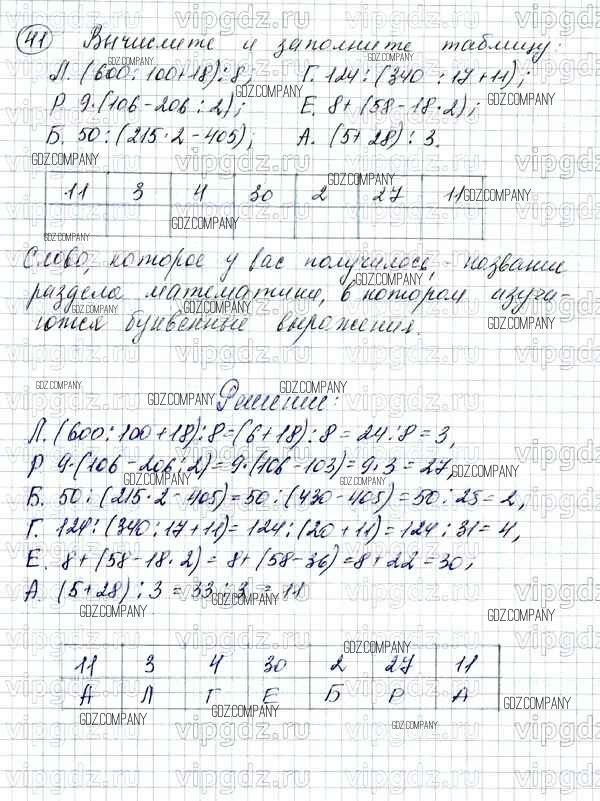 41 Вычислите и заполните таблицу:
Л. (600 : 100 + 18) : 8; Г. 124 : (340 : 17 + 11);
Р 9·(106 - 206 : 2); Е. 8 + (58 - 18·2);
Б. 50 : (215·2 - 405); А. (5 + 28) : 3.
11 3 4 30 2 27 11
Слово, которое у вас получилось, - название
раздела математики, в котором изуча-
ются буквенные выражения.
Решение:
Л. (600 : 100 + 18) : 8 = (6 + 18) : 8 = 24 : 8 = 3,
Р 9·(106 - 206 : 2) = 9·(106 - 103) = 9·3 = 27,
Б. 50 : (215·2 - 405) = 50 : (430 - 405) = 50 : 25 = 2,
Г. 124 : (340 : 17 + 11) = 124 : (20 + 11) = 124 : 31 = 4,
Е. 8 + (58 - 18·2) = 8 + (58 - 36) = 8 + 22 = 30,
А. (5 + 28) : 3 = 33 : 3 = 11
11 3 4 30 2 27 11
А Л Г Е Б Р А
GDZ.COMPANY
vipgdz.ru